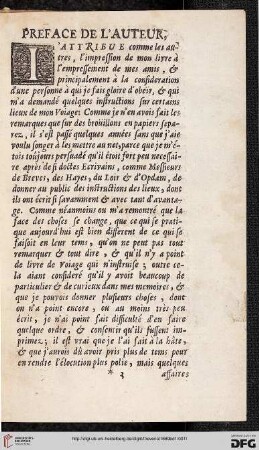 PREFACE DE L'AUTEUR,
J'ATTRIBUE comme les au-
tres, l'impression de mon livre à
l'empressement de mes amis, &
principalement à la consideration
d'une personne à qui je fais gloire d'obeir, & qui
m'a demandé quelques instructions sur certains
lieux de mon Voiage: Comme je n'en avois fait les
remarques que sur des brouillons en papiers sepa-
rez, il s'est passé quelques années sans que j'aie
voulu songer à les mettre au net, parce que je m'é-
tois toûjours persuadé qu'il étoit fort peu necessai-
re aprés de si doctes Ecrivains, comme Messieurs
de Breves, des Hayes, du Loir & d'Opdam, de
donner au public des instructions des lieux, dont
ils ont écrit si savamment & avec tant d'avanta-
ge. Comme néanmoins on m'a remontré que la
face des choses se change, que ce qui se pratiq
que aujourd'hui est bien different de ce qui se
faisoit en leur tems, qu'on ne peut pas tout
remarquer & tout dire, & qu'il n'y a point
de livre de Voiage qui n'instruise; outre ce-
la aiant consideré qu'il y avoit beaucoup de
particulier & de curieux dans mes memoires, &
que je pouvois donner plusieurs choses, dont
on n'a point encore, ou au moins trés peu
écrit, je n'ai point fait difficulté d'en faire
quelque ordre, & consentir qu'ils fussent im-
primez; il est vrai que je l'ai fait à la hâte,
& que j'aurois dû avoir pris plus de tems pour
en rendre l'élocution plus polie, mais quelques
* 3 affaires